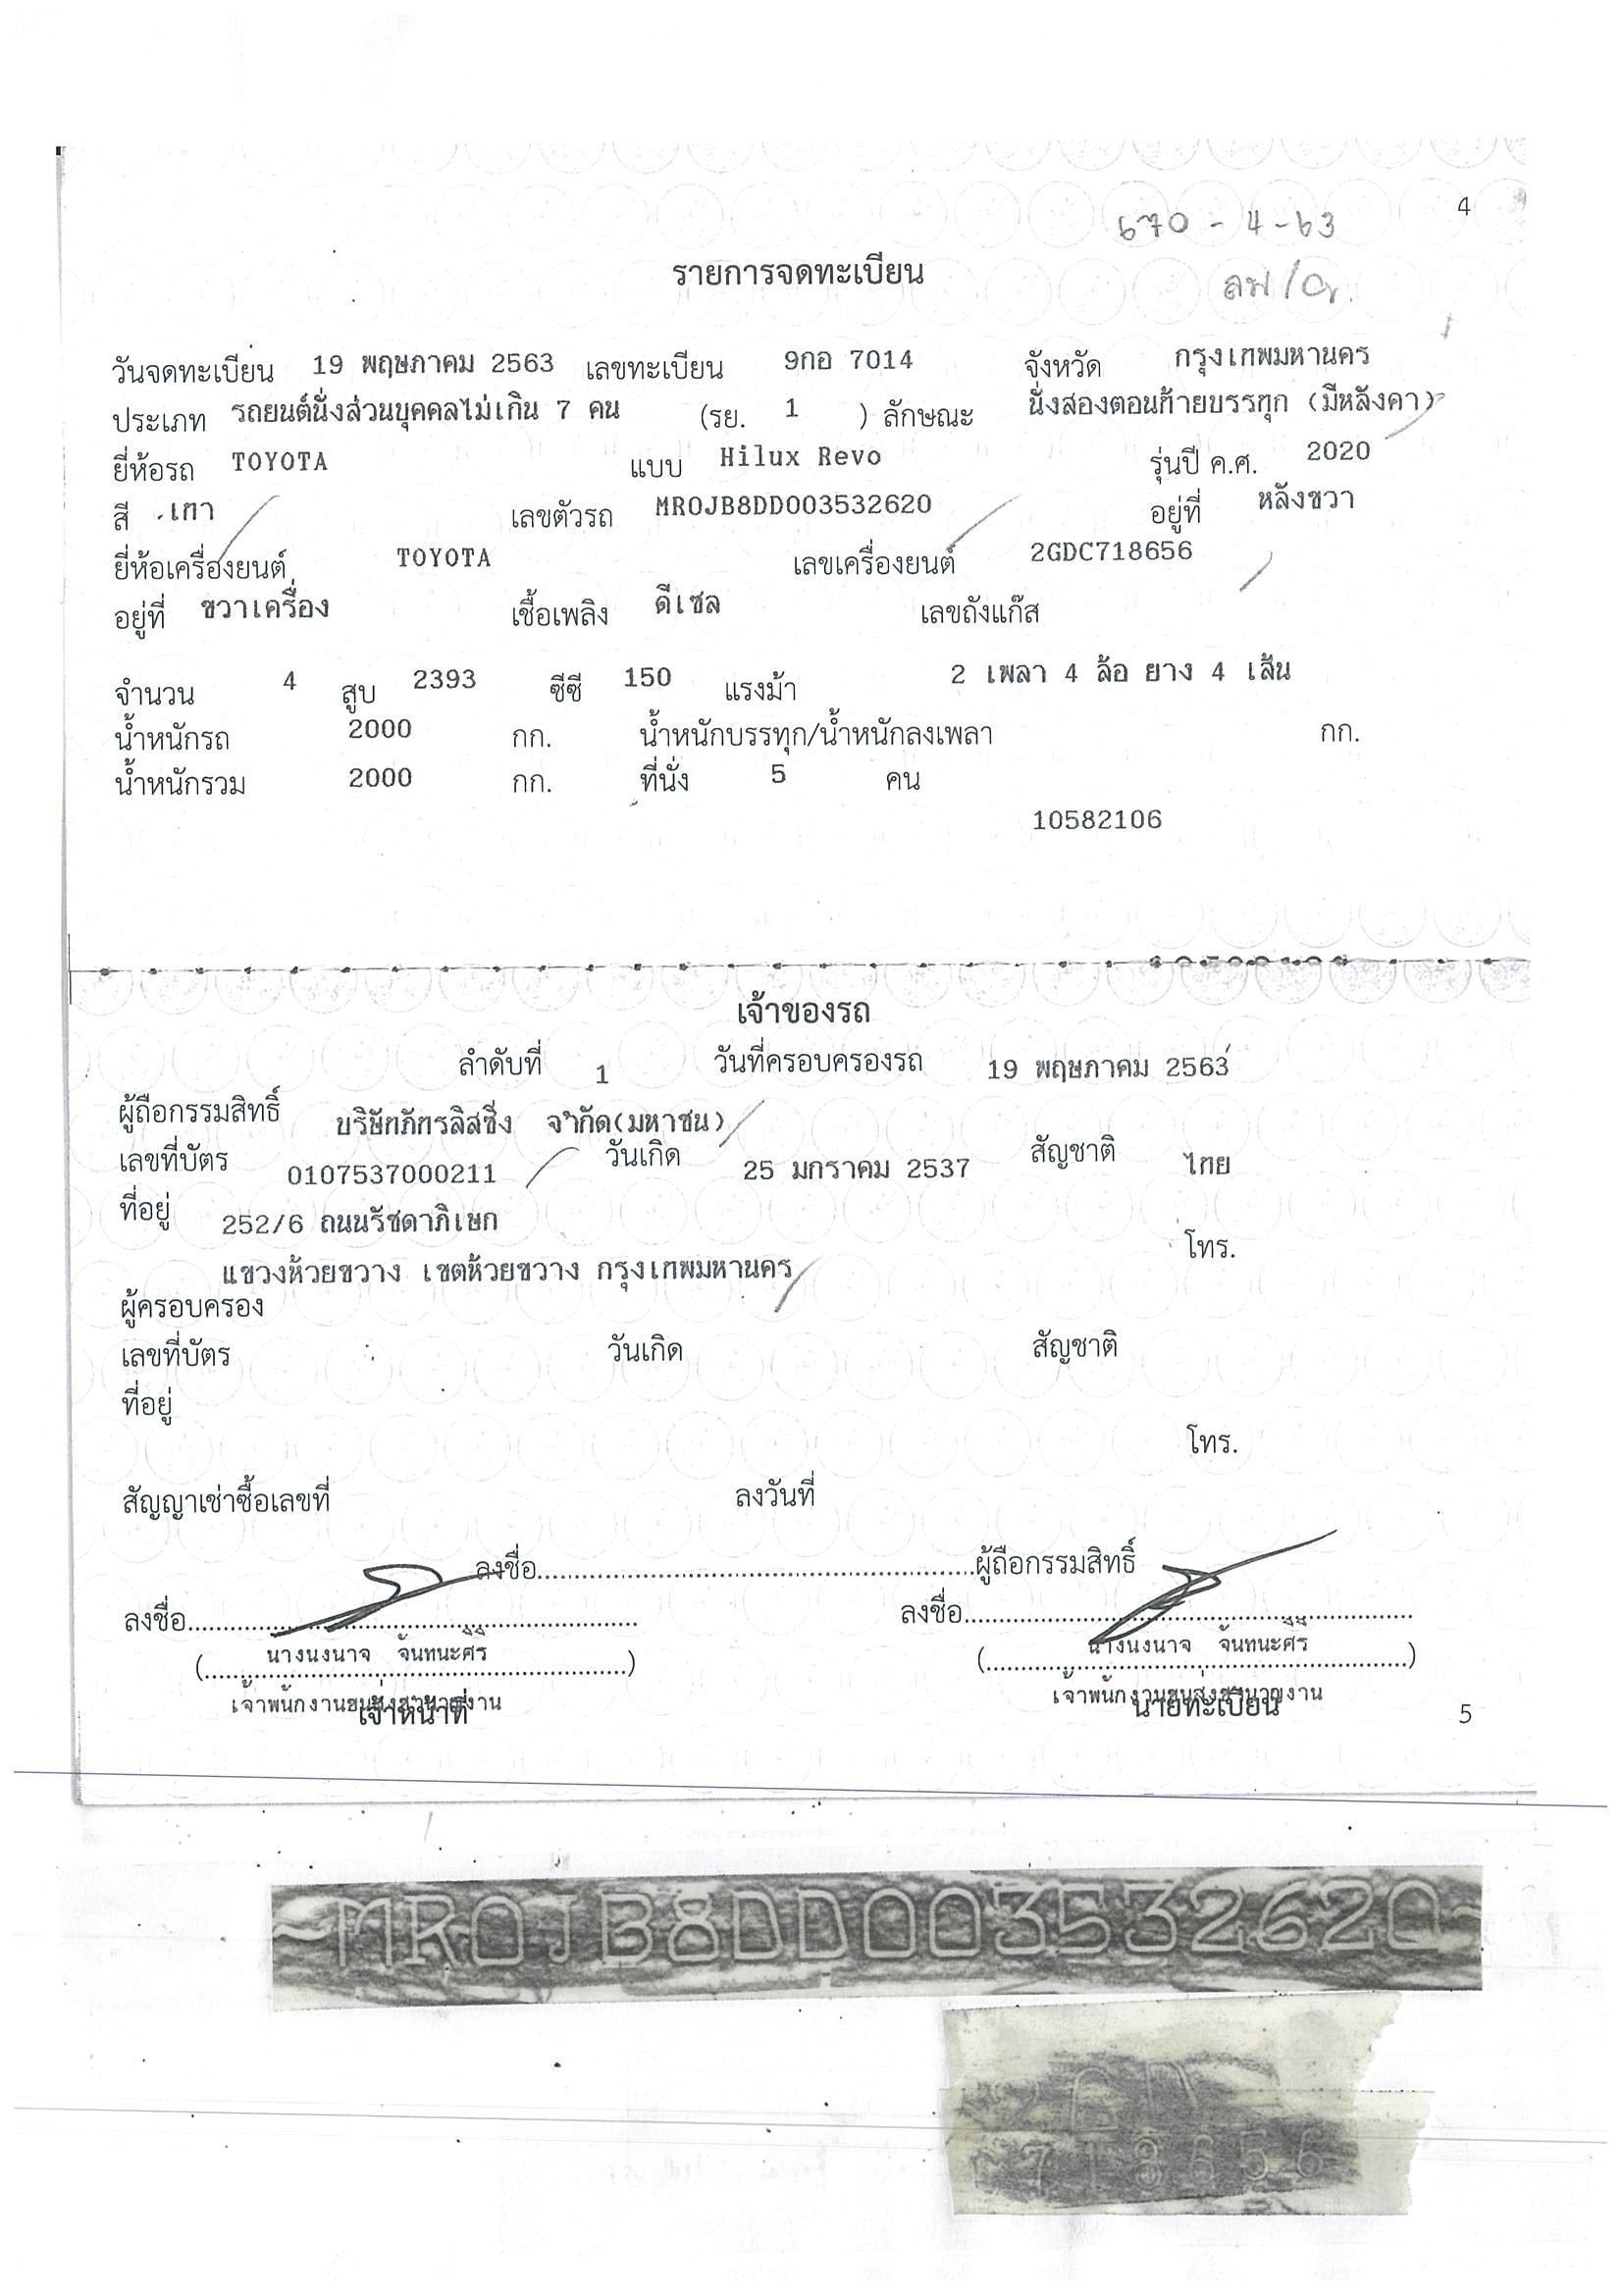 4
670 - 4 - 63
รายการจดทะเบียน
วันจดทะเบียน 19 พฤษภาคม 2563 เลขทะเบียน 9กอ 7014 จังหวัด กรุงเทพมหานคร
ประเภท รถยนต์นั่งส่วนบุคคลไม่เกิน 7 คน (รย. 1 ) ลักษณะ นั่งสองตอนท้ายบรรทุก (มีหลังคา)
ยี่ห้อรถ TOYOTA แบบ Hilux Revo รุ่นปี ค.ศ. 2020
สี เทา เลขตัวรถ MR0JB8DD003532620 อยู่ที่ หลังขวา
ยี่ห้อเครื่องยนต์ TOYOTA เลขเครื่องยนต์ 2GDC718656
อยู่ที่ ขวาเครื่อง เชื้อเพลิง ดีเซล เลขถังแก๊ส
จำนวน 4 สูบ 2393 ซีซี 150 แรงม้า 2 เพลา 4 ล้อ ยาง 4 เส้น
น้ำหนักรถ 2000 กก. น้ำหนักบรรทุก/น้ำหนักลงเพลา กก.
น้ำหนักรวม 2000 กก. ที่นั่ง 5 คน
10582106
เจ้าของรถ
ลำดับที่ 1 วันที่ครอบครองรถ 19 พฤษภาคม 2563
ผู้ถือกรรมสิทธิ์ บริษัทภัทรลิสซิ่ง จำกัด(มหาชน)
เลขที่บัตร 0107537000211 วันเกิด 25 มกราคม 2537 สัญชาติ ไทย
ที่อยู่ 252/6 ถนนรัชดาภิเษก
โทร.
แขวงห้วยขวาง เขตห้วยขวาง กรุงเทพมหานคร
ผู้ครอบครอง
เลขที่บัตร วันเกิด สัญชาติ
ที่อยู่
โทร.
สัญญาเช่าซื้อเลขที่ ลงวันที่
ลงชื่อ ผู้ถือกรรมสิทธิ์
ลงชื่อ ลงชื่อ
(นางนงนาจ จันทนะศิริ) (นางนงนาจ จันทนะศิริ)
เจ้าพนักงานขนส่งชำนาญงาน เจ้าพนักงานขนส่งชำนาญงาน
เจ้าหน้าที่ นายทะเบียน
5
MR0JB8DD003532620
718656